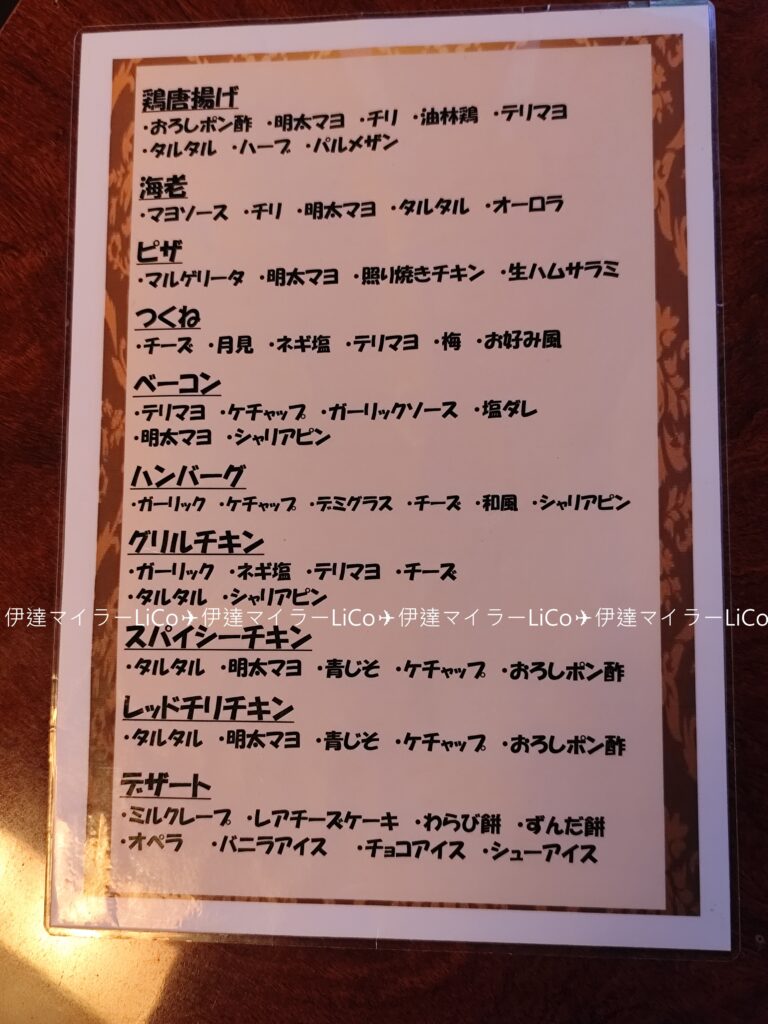 鶏唐揚げ
・おろしポン酢 ・明太マヨ ・チリ ・油林鶏 ・テリマヨ
・タルタル ・ハーブ ・パルメザン
海老
・マヨソース ・チリ ・明太マヨ ・タルタル ・オーロラ
ピザ
・マルゲリータ ・明太マヨ ・照り焼きチキン ・生ハムサラミ
つくね
・チーズ ・月見 ・ネギ塩 ・テリマヨ ・梅 ・お好み風
ベーコン
・テリマヨ ・ケチャップ ・ガーリックソース ・塩ダレ
・明太マヨ ・シャリアピン
ハンバーグ
・ガーリック ・ケチャップ ・デミグラス ・チーズ ・和風 ・シャリアピン
グリルチキン
・ガーリック ・ネギ塩 ・テリマヨ ・チーズ
・タルタル ・シャリアピン
伊達マイラーLiCo✈伊達マイラーLiCo✈伊達マイラーLiCo✈伊達マイラーLiCo
スパイシーチキン
・タルタル ・明太マヨ ・青じそ ・ケチャップ ・おろしポン酢
レッドチリチキン
・タルタル ・明太マヨ ・青じそ ・ケチャップ ・おろしポン酢
デザート
・ミルクレープ ・レアチーズケーキ ・わらび餅 ・ずんだ餅
・オペラ ・バニラアイス ・チョコアイス ・シューアイス